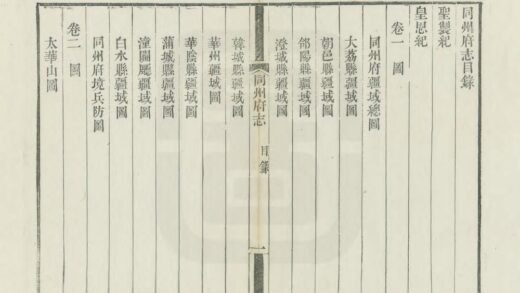 同州府志目錄
聖製紀
皇恩紀
卷一 圖
同州府疆域總圖
大荔縣疆域圖
朝邑縣疆域圖
郃陽縣疆域圖
澄城縣疆域圖
同州府志 目錄 一
韓城縣疆域圖
華州疆域圖
華陰縣疆域圖
蒲城縣疆域圖
潼關廳疆域圖
白水縣疆域圖
同州府境兵防圖
卷二 圖
太華山圖